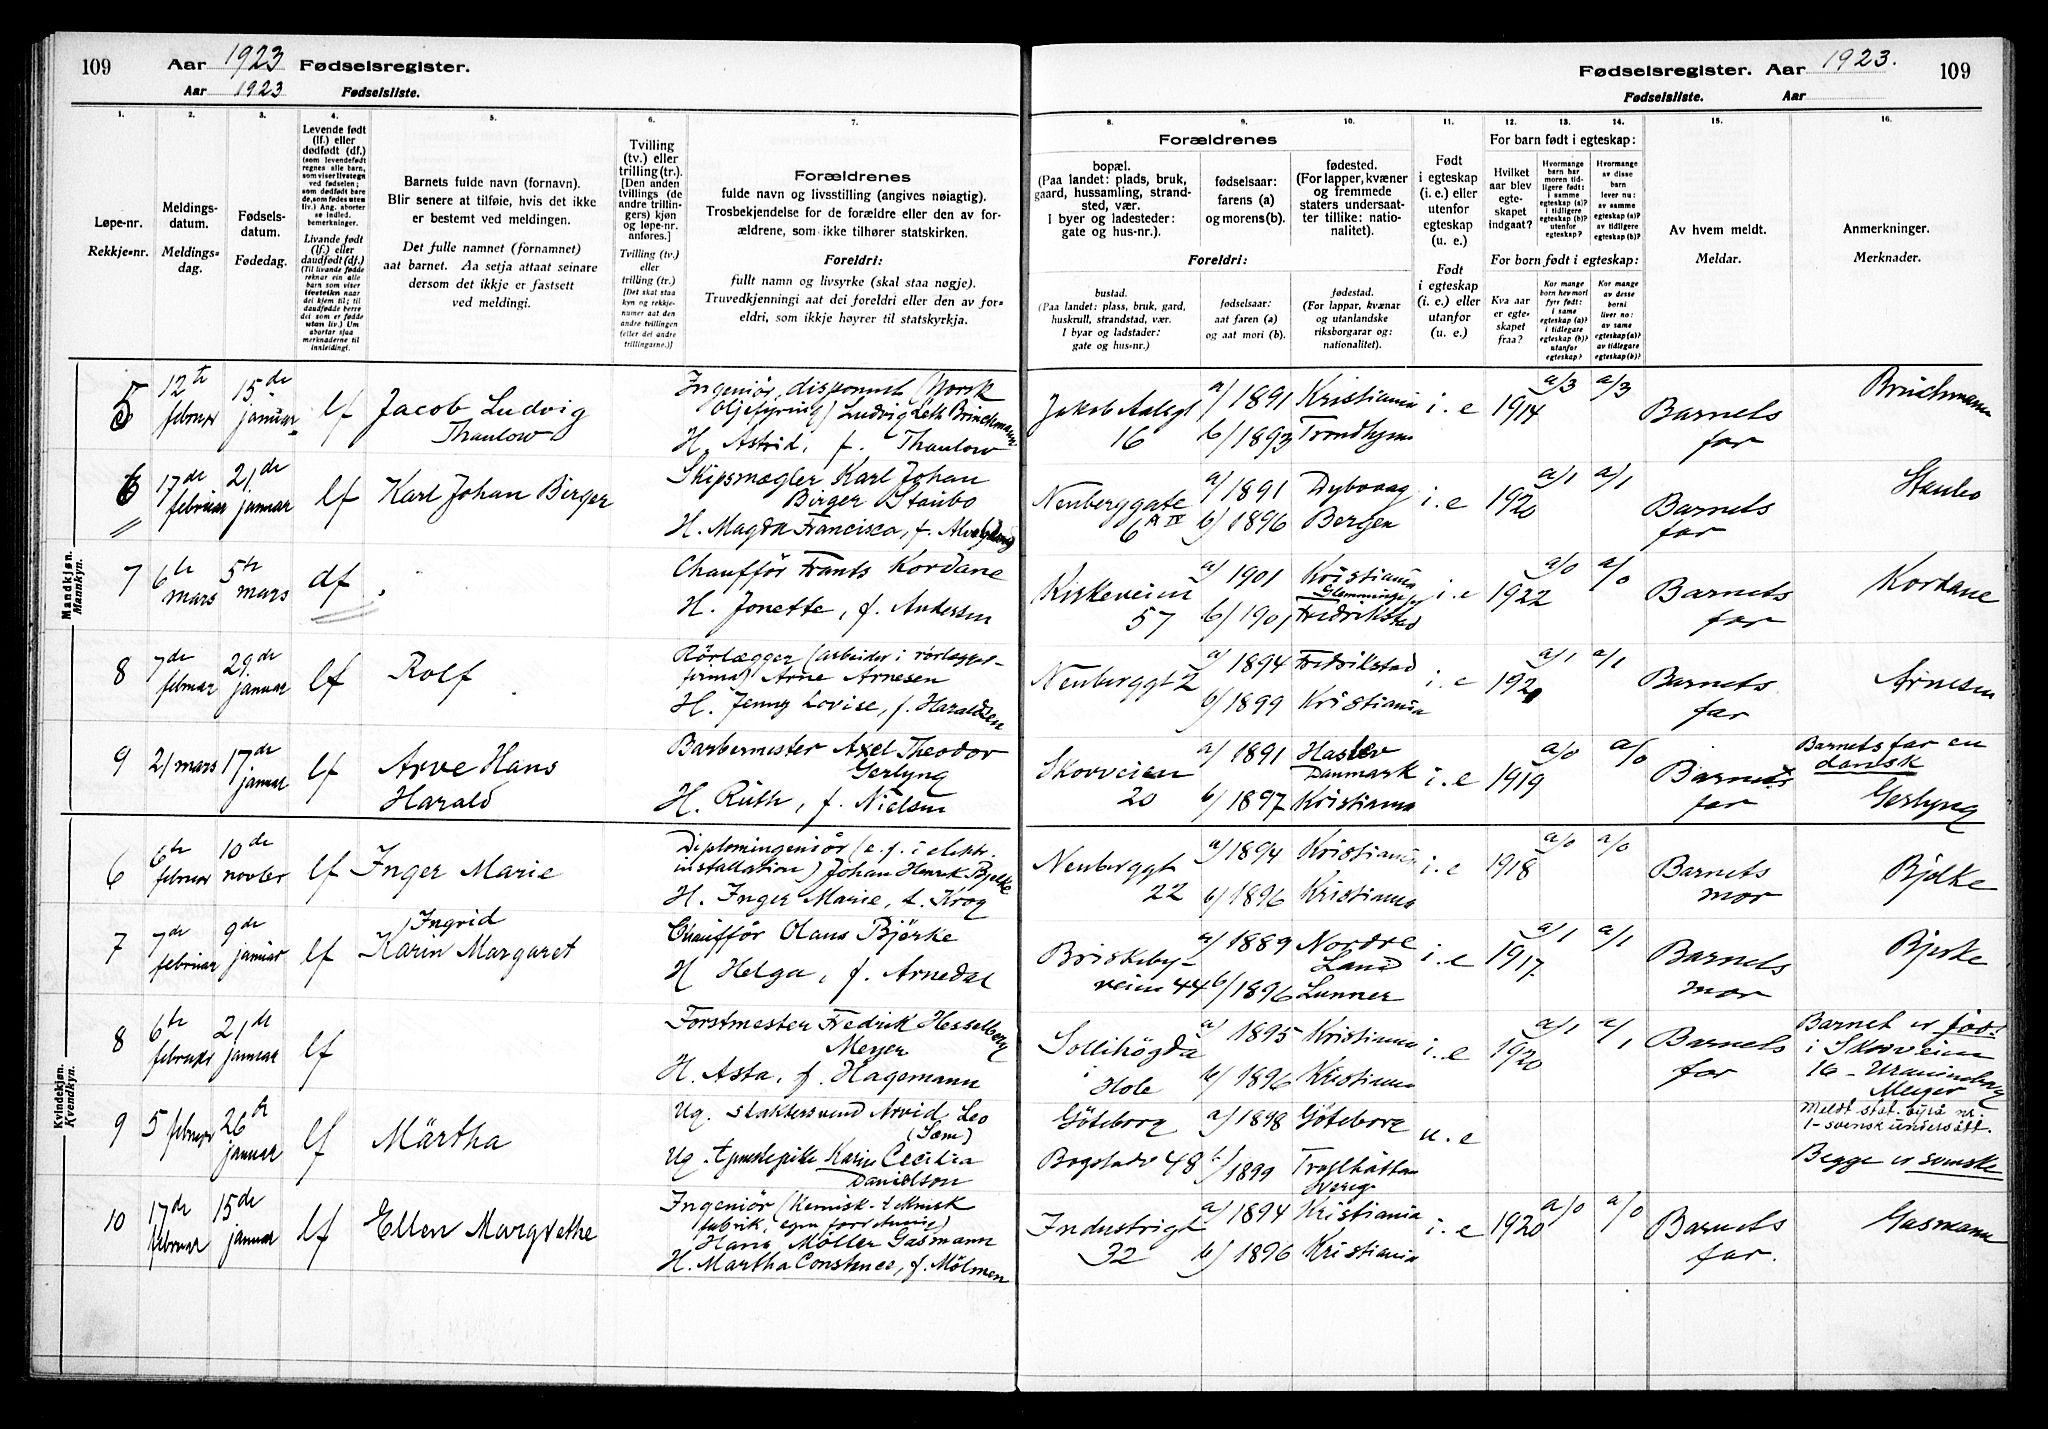 109 Aar 1923 Fødselsregister.
Aar 1923 Fødselsliste.
Fødselsregister. Aar 1923. 109
Fødselsliste. Aar
1. 2. 3. 4. 5. 6. 7.
Løpe-nr.
Rekkje-nr.
Meldings-
datum.
Meldings-
dag.
Fødsels-
datum.
Fødedag.
Levende født
(lf.) eller
dødfødt (df.)
(som levendefødt
regnes alle barn,
som viser livstegn
ved fødselen;
som dødfødt bare
de, som fødes uten
liv.) Ang. aborter
se indled.
bemerkninger.
Livande født
(lf.) eller
daudfødt (df.)
(Til livande fødde
reknar ein alle
barn som viser
livsteikn naar
dei kjem til; til
daudfødde berre
dei som er fødde
utan liv.) Um
abortar sjaa
merknaderne til
innleidingi.
Barnets fulde navn (fornavn).
Blir senere at tilføie, hvis det ikke
er bestemt ved meldingen.
Det fulle namnet (fornamnet)
aat barnet. Aa setja attaat seinare
dersom det ikkje er fastsett
ved meldingi.
Tvilling
(tv.) eller
trilling (tr.).
[Den anden
tvillings (de
andre trillin-
gers) kjøn
og løpe-nr.
anføres.]
Tvilling (tv.)
eller
trilling (tr.)
[Det skal staa
kyn og rekkje-
numer aat den
andre tvillingen
(eller dei andre
trillingarne.)]
Forældrenes
fulde navn og livsstilling (angives nøiagtig).
Trosbekjendelse for de forældre eller den av for-
ældrene, som ikke tilhører statskirken.
Foreldri:
fullt namn og livsyrke (skal staa nøgje).
Truvedkjenningi aat dei foreldri eller den av for-
eldri, som ikkje høyrer til statskyrkja.
8. 9. 10. 11. 12. 13. 14. 15. 16.
Forældrenes
bopæl.
(Paa landet: plads, bruk,
gaard, hussamling, strand-
sted, vær.
I byer og ladesteder:
gate og hus-nr.).
fødselsaar:
farens (a)
og morens (b).
fødested.
(For lapper, kvæner
og fremmede
staters undersaat-
ter tillike: natio-
nalitet).
Foreldri:
bustad.
(Paa landet: plass, bruk, gard,
huskrull, strandstad, vær.
I byar og ladstader:
gate og hus-nr.)
fødselsaar:
aat faren (a)
og aat mori (b).
fødestad.
(For lappar, kvænar
og utanlandske
riksborgarar og:
nationalitet).
Født
i egteskap
(i. e.) eller
utenfor
egteskap
(u. e.)
Født
i egteskap
(i. e.) eller
utanfor
(u. e.)
For barn født i egteskap:
Hvilket
aar blev
egte-
skapet
indgaat?
Hvormange
barn har
moren tid-
ligere født:
i samme
egteskap (a)?
i tidligere
egteskap (b)?
utenfor
egteskap?
Hvormange
av disse
barn
lever nu:
av samme
egteskap (a)?
av tidligere
egteskap (b)?
For born født i egteskap:
Kva aar
er egte-
skapet
fraa?
Kor mange
born hev mori
fyrr født:
i same
egteskap (a)?
i tidlegare
egteskap (b)?
utanfor
egteskap?
Kor mange
av desse
borni
liver no:
av same
egteskap (a)?
av tidlegare
egteskap (b)?
Av hvem meldt.
Meldar.
Anmerkninger.
Merknader.
Mandkjøn.
Mannkyn.
5 12te februar 15de januar lf Jacob Ludvig
Thaulow
Ingeniør, disponent (Norsk
Oljefyring) Ludvig Leth Brinchmann
H. Astrid, f. Thaulow
Jakob Aalsgt
16
a/ 1891 Kristiania
b/ 1893 Trondhjem
i. e 1914 a/3 a/3 Barnets
far
Brinchmann
6 17de februar 21de januar lf Karl Johan Birger
Skipsmægler Karl Johan
Birger Staubo
H. Magda Francisca, f.
Neuberggate
6 A IV
a/ 1891 Dybvaag
b/ 1896 Bergen
i. e 1920 a/1 a/1 Barnets
far
Staubo
7 6te mars 5te mars df.
Chauffør Frants Kordane
H. Jonette, f. Andersen
Kirkeveien
57
a/ 1901 Kristiania
b/ 1901 Glemminge
Fredrikstad
i. e 1922 a/0 a/0 Barnets
far
Kordane
8 7de februar 29de januar lf Rolf
Rørlægger (arbeider i rørlægger-
firma) Arne Arnesen
H. Jenny Lovise, f. Haraldsen
Neuberggt 2
a/ 1894 Fredrikstad
b/ 1899 Kristiania
i. e a/1 a/1 Barnets
far
Arnesen
9 21 mars 17de januar lf Arve Hans
Harald
Barbermester Axel Theodor
Gerlyng
H. Ruth, f. Nielsen
Skovveien
20
a/ 1891 Haslev
Danmark
b/ 1897 Kristiania
i. e 1919 a/0 a/0 Barnets
far
Barnets far en
dansk
Gerlyng
Kvindekjøn.
Kvendkyn.
6 6te februar 10de novbr lf Inger Marie
Diplomingeniør (e. f. i elektr.
installation) Johan Henrik Bjelke
H. Inger Marie, f. Krog
Neuberggt
22
a/ 1894 Kristiania
b/ 1896 Kristiania
i. e 1918 a/0 a/0 Barnets
mor
Bjelke
7 7de februar 9de januar lf Ingrid
Karin Margaret
Chauffør Olaus Bjerke
H Helga, f. Arnedal
Briskeby-
veien 44
a/ 1889 Nordre
Land
b/ 1896 Lunner
i. e 1917. a/1 a/1 Barnets
mor
Bjerke
8 6te februar 21de januar lf
Forstmester Fredrik Hesselberg
Meyer
H. Asta, f. Hagemann
Sollihøgda
i
Hole
a/ 1895 Kristiania
b/ 1896 Kristiania
i. e 1920 a/1 a/1 Barnets
far
Barnet er født
i Skovveien
16 - Uranienborg
Meyer
9 5 februar 26te januar lf Märtha
Ug. slaktersvend Arvid Leo
(Sam)
Ug. tjenestepike Karin Cecilia
Danielson
Göteborg
Bogstadv 48
a/ 1898 Göteborg
b/ 1899 Trollhättan
Sverig
u. e
Meldt stat. byrå nr.
1 - svensk undersått.
Begge er svenske
10 17de februar 15de januar lf Ellen Margrethe
Ingeniør (Kemisk-teknisk
fabrik, egen forretning)
Hans Møller Gasmann
H. Martha Constance, f. Mølmen
Industrigt
32
a/ 1894 Kristiania
b/ 1896 Kristiania
i. e 1920 a/0 a/0 Barnets
far.
Gasmann